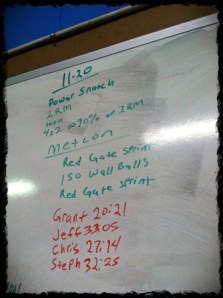 11-20
Power Snatch
2RM
then
4x2 @90% of 2RM
Metcon
Red Gate Sprint
150 Wall Balls
Red Gate Sprint
Grant 20:21
Jeff 33:05
Chris 27:14
Steph 32:25